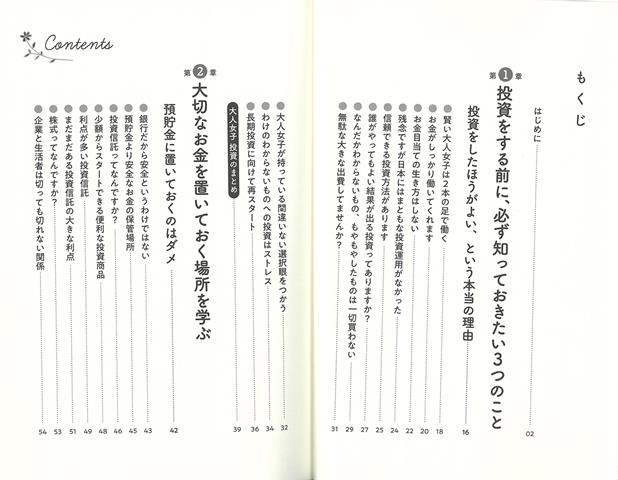 もくじ
はじめに 02
第1章 投資をする前に、必ず知っておきたい3つのこと
投資をしたほうがよい、という本当の理由 16
賢い大人女子は2本の足で働く 18
お金がしっかり働いてくれます 20
お金目当ての生き方はしない 22
残念ですが日本にはまともな投資運用がなかった 24
信頼できる投資方法があります 25
誰がやってもよい結果が出る投資ってありますか? 27
なんだかわからないもの、もやもやしたものは一切買わない 29
無駄な大きな出費してませんか? 31
大人女子が持っている間違いない選択眼をつかう 32
わけのわからないものへの投資はストレス 34
長期投資に向けて再スタート 36
大人女子 投資のまとめ 39
Contents
第2章 大切なお金を置いておく場所を学ぶ
預貯金に置いておくのはダメ 42
銀行だから安全というわけではない 43
預貯金より安全なお金の保管場所 45
投資信託ってなんですか? 46
少額からスタートできる便利な投資商品 48
利点が多い投資信託 49
まだまだある投資信託の大きな利点 51
株式ってなんですか? 53
企業と生活者は切っても切れない関係 54